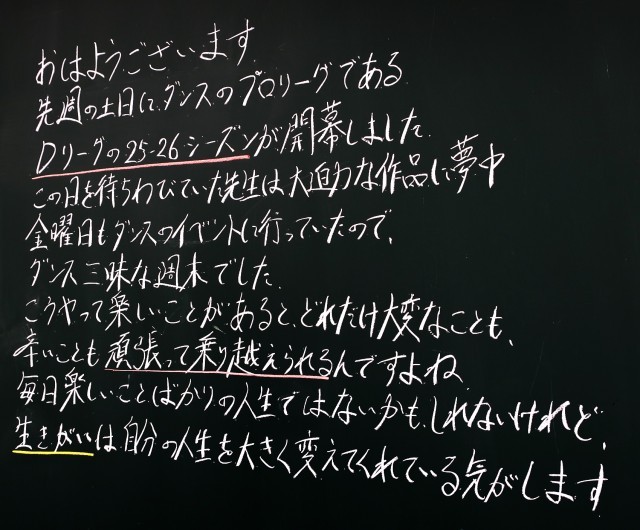 おはようございます
先週の土日に、ダンスのプロリーグである
Dリーグの25-26シーズンが開幕しました
この日を待ちわびていた先生は大迫力な作品に夢中
金曜日もダンスのイベントに行っていたので、
ダンス三昧な週末でした
こうやって楽しいことがあると、どれだけ大変なことも、
辛いことも頑張って乗り越えられるんですよね
毎日楽しいことばかりの人生ではないかもしれないけれど、
生きがいは自分の人生を大きく変えてくれている気がします